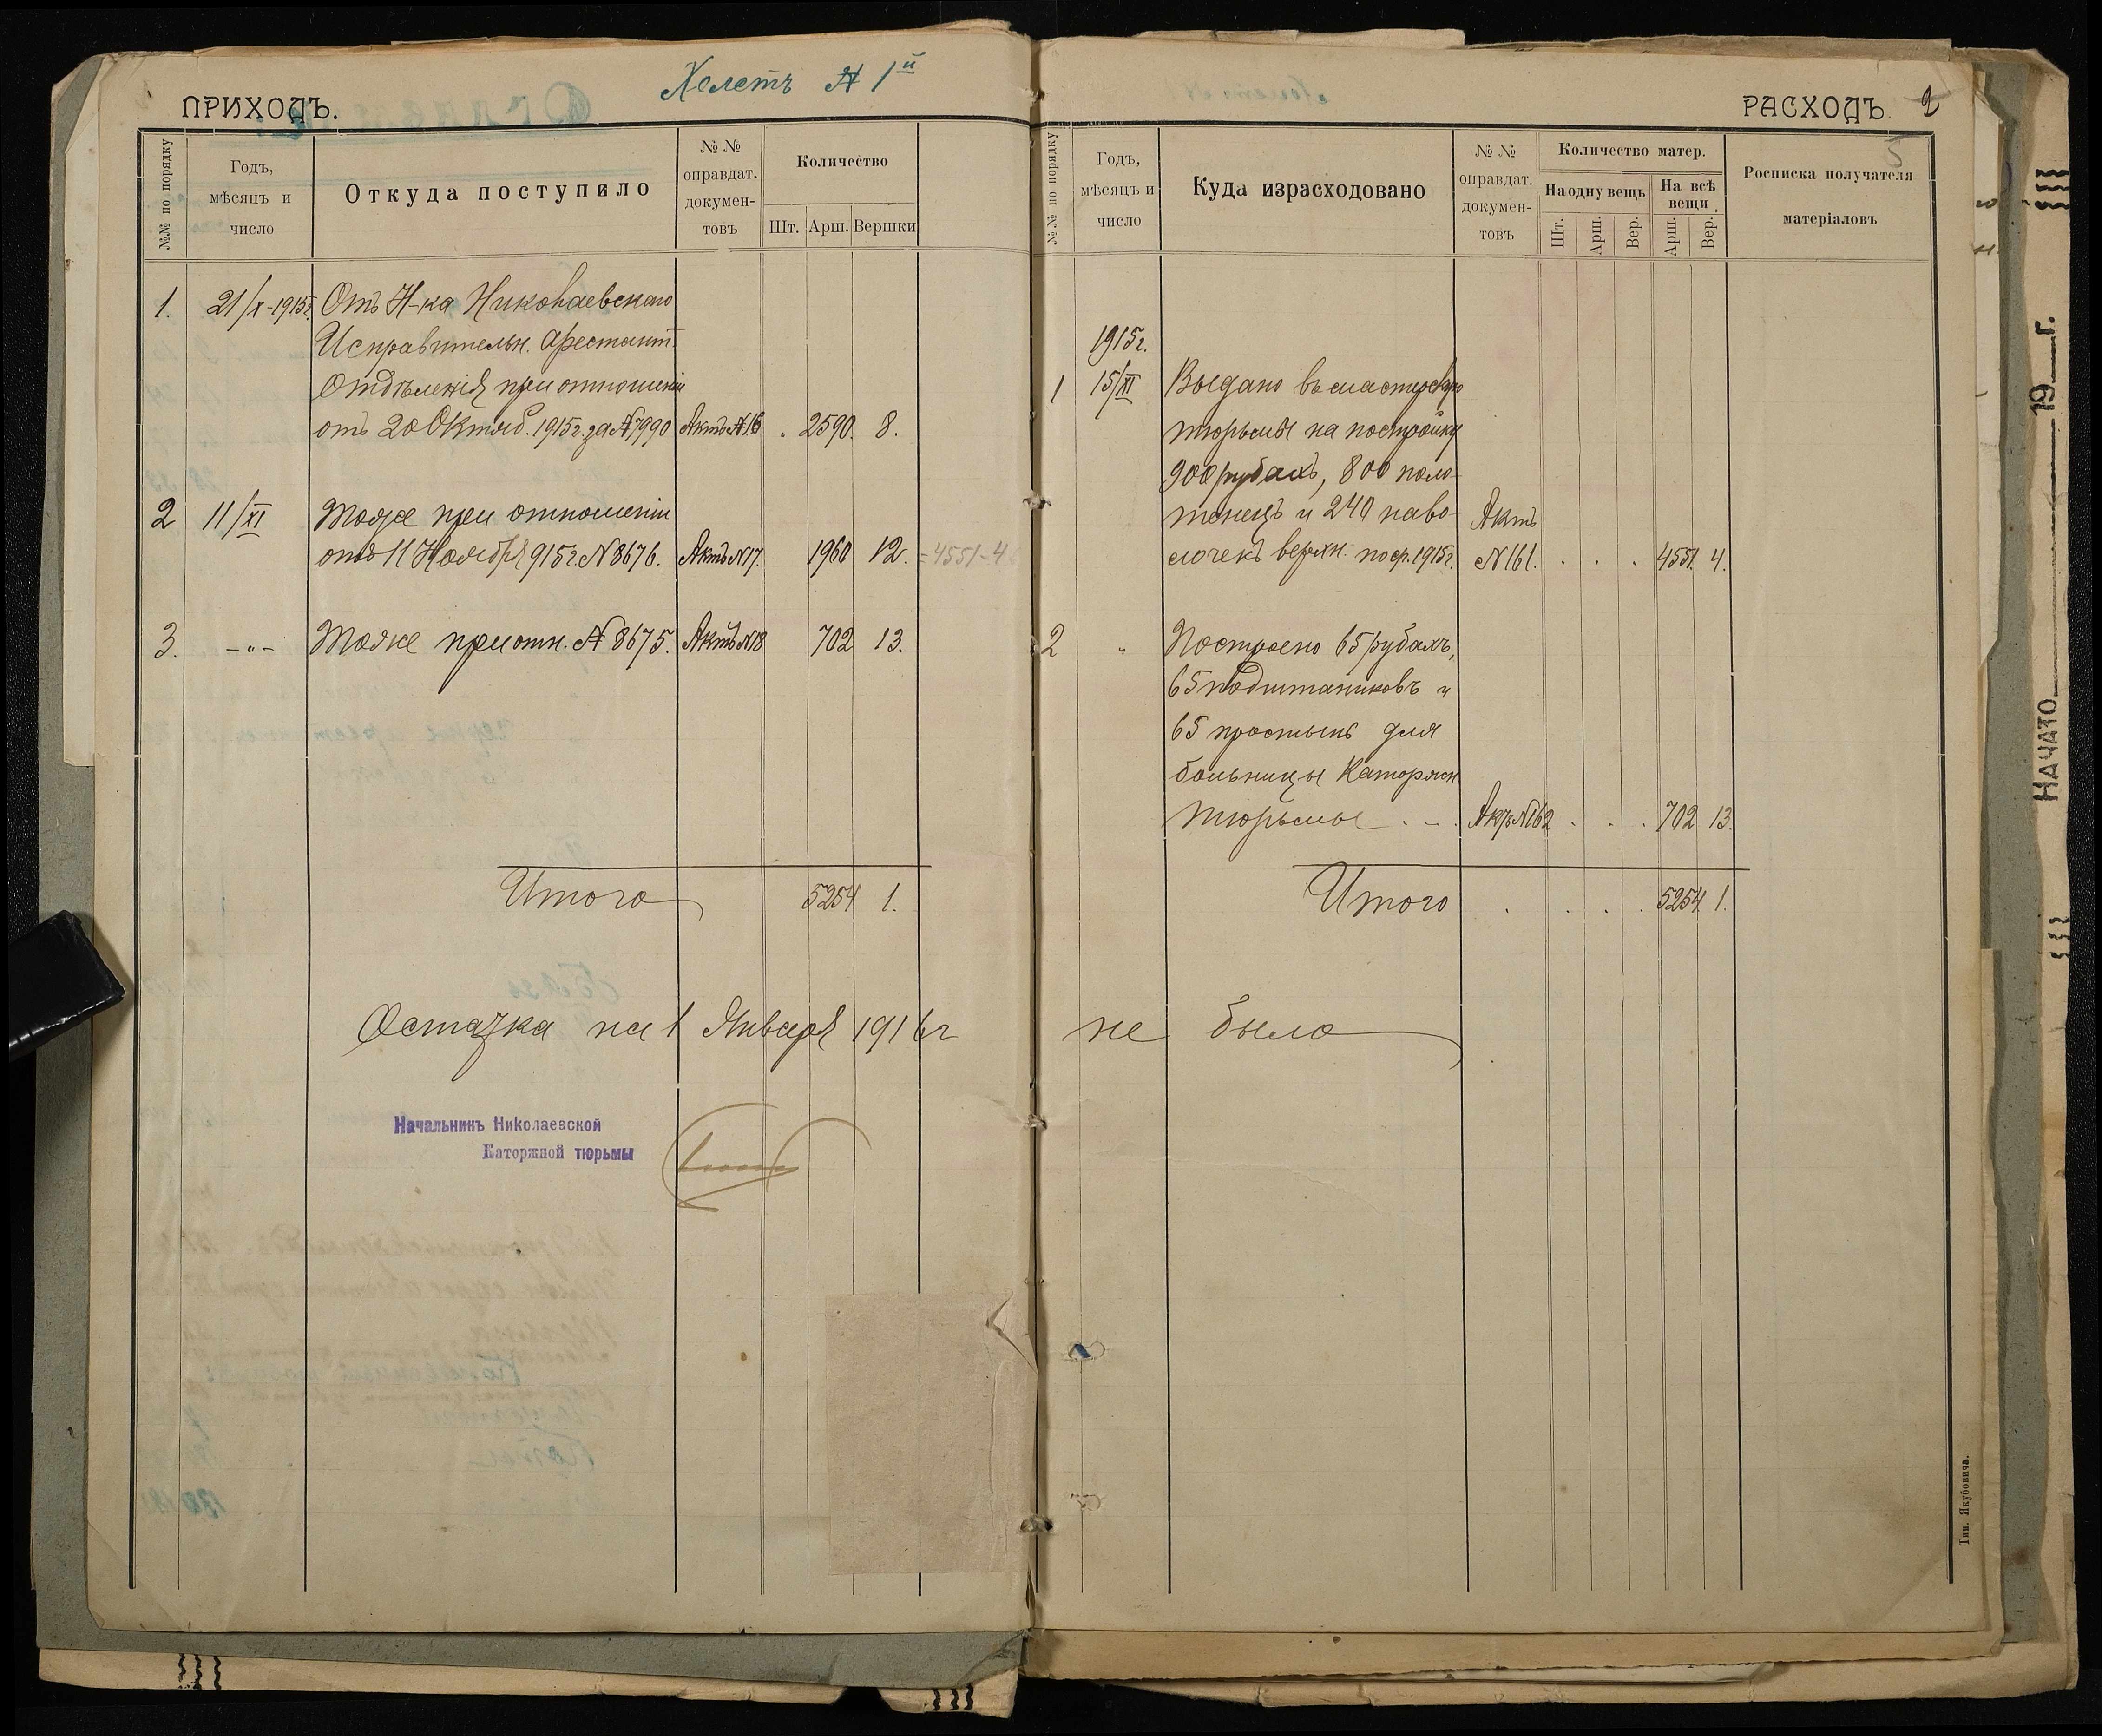 Холстъ № 1й
ПРИХОДЪ.
№№ по порядку
Годъ,
мѣсяцъ и
число
Откуда поступило
№ №
оправдат.
докумен-
товъ
Количество
Шт. Арш. Вершки
1. 21/X-1915г. Отъ Н-ка Николаевскаго
Исправительн. Арестант.
Отдѣленія при отношеніи
отъ 20 Октяб. 1915г. за № 7990 Актъ № 16 . 2590. 8.
2 11/XI Тоже при отношеніи
отъ 11 Ноября 915г. № 8676. Актъ № 17. 1960 12. = 4551-4
3. -"- Тоже при отн. № 8675. Актъ № 18 702 13.
Итого 5254 1.
Остатка на 1 Января 1916г
Начальникъ Николаевской
Каторжной тюрьмы
РАСХОДЪ 2
5
№№ по порядку
Годъ,
мѣсяцъ и
число
Куда израсходовано
№ №
оправдат.
докумен-
товъ
Количество матер.
На одну вещь
На всѣ
вещи.
Шт. Арш. Вер. Арш. Вер.
Росписка получателя
матеріаловъ
1915г.
1 15/XI Выдано въ мастерскую
тюрьмы на постройку
900 рубахъ, 800 поло-
тенецъ и 240 наво- Актъ
лочекъ верхн. по ср. 1915г. № 161. . . . 4551. 4.
2 " Построено 65 рубахъ,
65 подштаниковъ и
65 простынь для
больницы Каторжн
тюрьмы . - . Актъ № 162 . . . 702 13.
Итого . . . . 5254 1.
не было
Тип. Якубовича.
НАЧАТО 19 г.